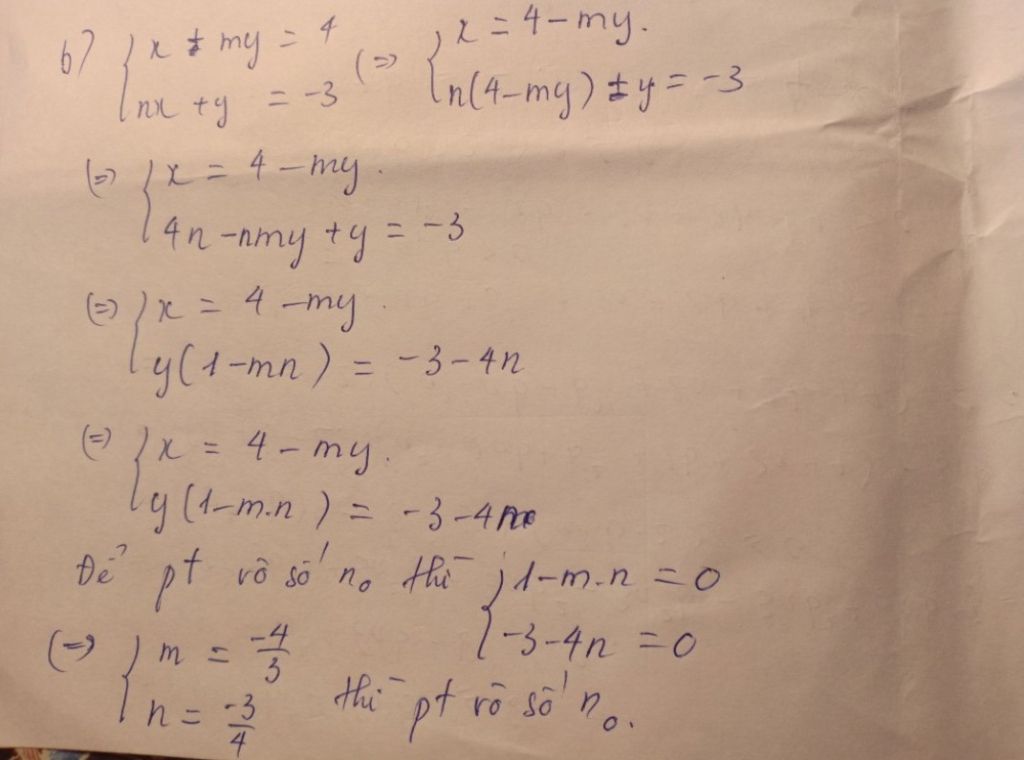 b) { x + my = 4 (=) { x = 4 - my.
nx + y = -3 n(4-my) + y = -3
(=) { x = 4 - my.
4n - nmy + y = -3
(=) { x = 4 - my.
y(1-mn) = -3-4n
(=) { x = 4 - my.
y(1-m.n) = -3-4n
Để pt vô số no thì { 1-m.n = 0
-3-4n = 0
(=) { m = -4/3
n = -3/4 thì pt vô số no.